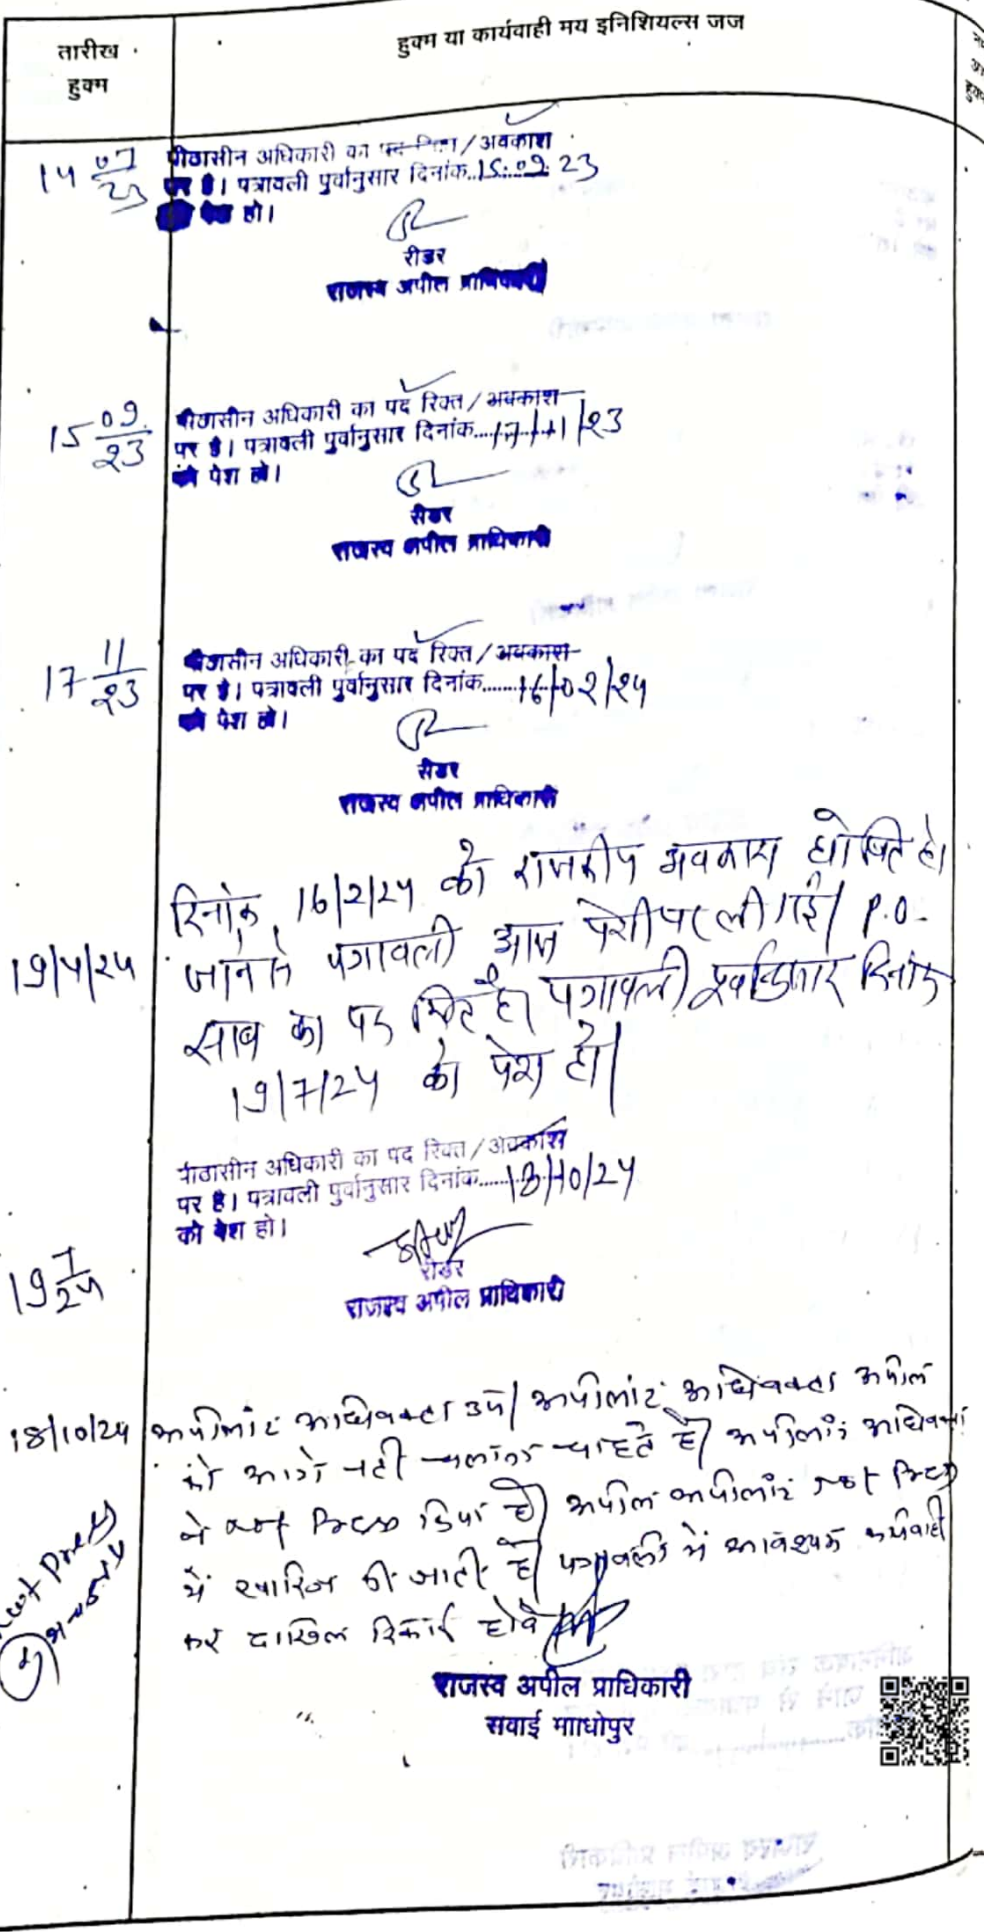 तारीख हुक्म
हुक्म या कार्यवाही मय इनिशियल्स जज
14 07/23
पीठासीन अधिकारी का पद रिक्त/अवकाश
पर है। पत्रावली पुर्वानुसार दिनांक..15.09.23
को पेश हो।
रीडर
राजस्व अपील प्राधिकारी
15 09/23
पीठासीन अधिकारी का पद रिक्त/अवकाश
पर है। पत्रावली पुर्वानुसार दिनांक....17/11/23
को पेश हो।
रीडर
राजस्व अपील प्राधिकारी
17 11/23
पीठासीन अधिकारी का पद रिक्त/अवकाश
पर है। पत्रावली पुर्वानुसार दिनांक......16/02/24
को पेश हो।
रीडर
राजस्व अपील प्राधिकारी
दिनांक 16/2/24 को राजकीय अवकाश घोषित हो
19/4/24
जाने से पत्रावली आज पेशी पर ली गई। P.O.
साब का पद रिक्त है। पत्रावली पूर्वानुसार दिनांक
19/7/24 को पेश हो।
19 7/24
पीठासीन अधिकारी का पद रिक्त/अवकाश
पर है। पत्रावली पुर्वानुसार दिनांक......18/10/24
को पेश हो।
रीडर
राजस्व अपील प्राधिकारी
18/10/24
अपीलांट अधिवक्ता उप। अपीलांट अधिवक्ता अपील
को आगे नही चलाना चाहते है। अपीलांट अधिवक्ता
ने not Press किया है। अपील अपीलांट not Press
में खारिज की जाती है। पत्रावली में आवश्यक कार्यवाही
कर दाखिल रिकार्ड होवे।
not press
राजस्व अपील प्राधिकारी
सवाई माधोपुर